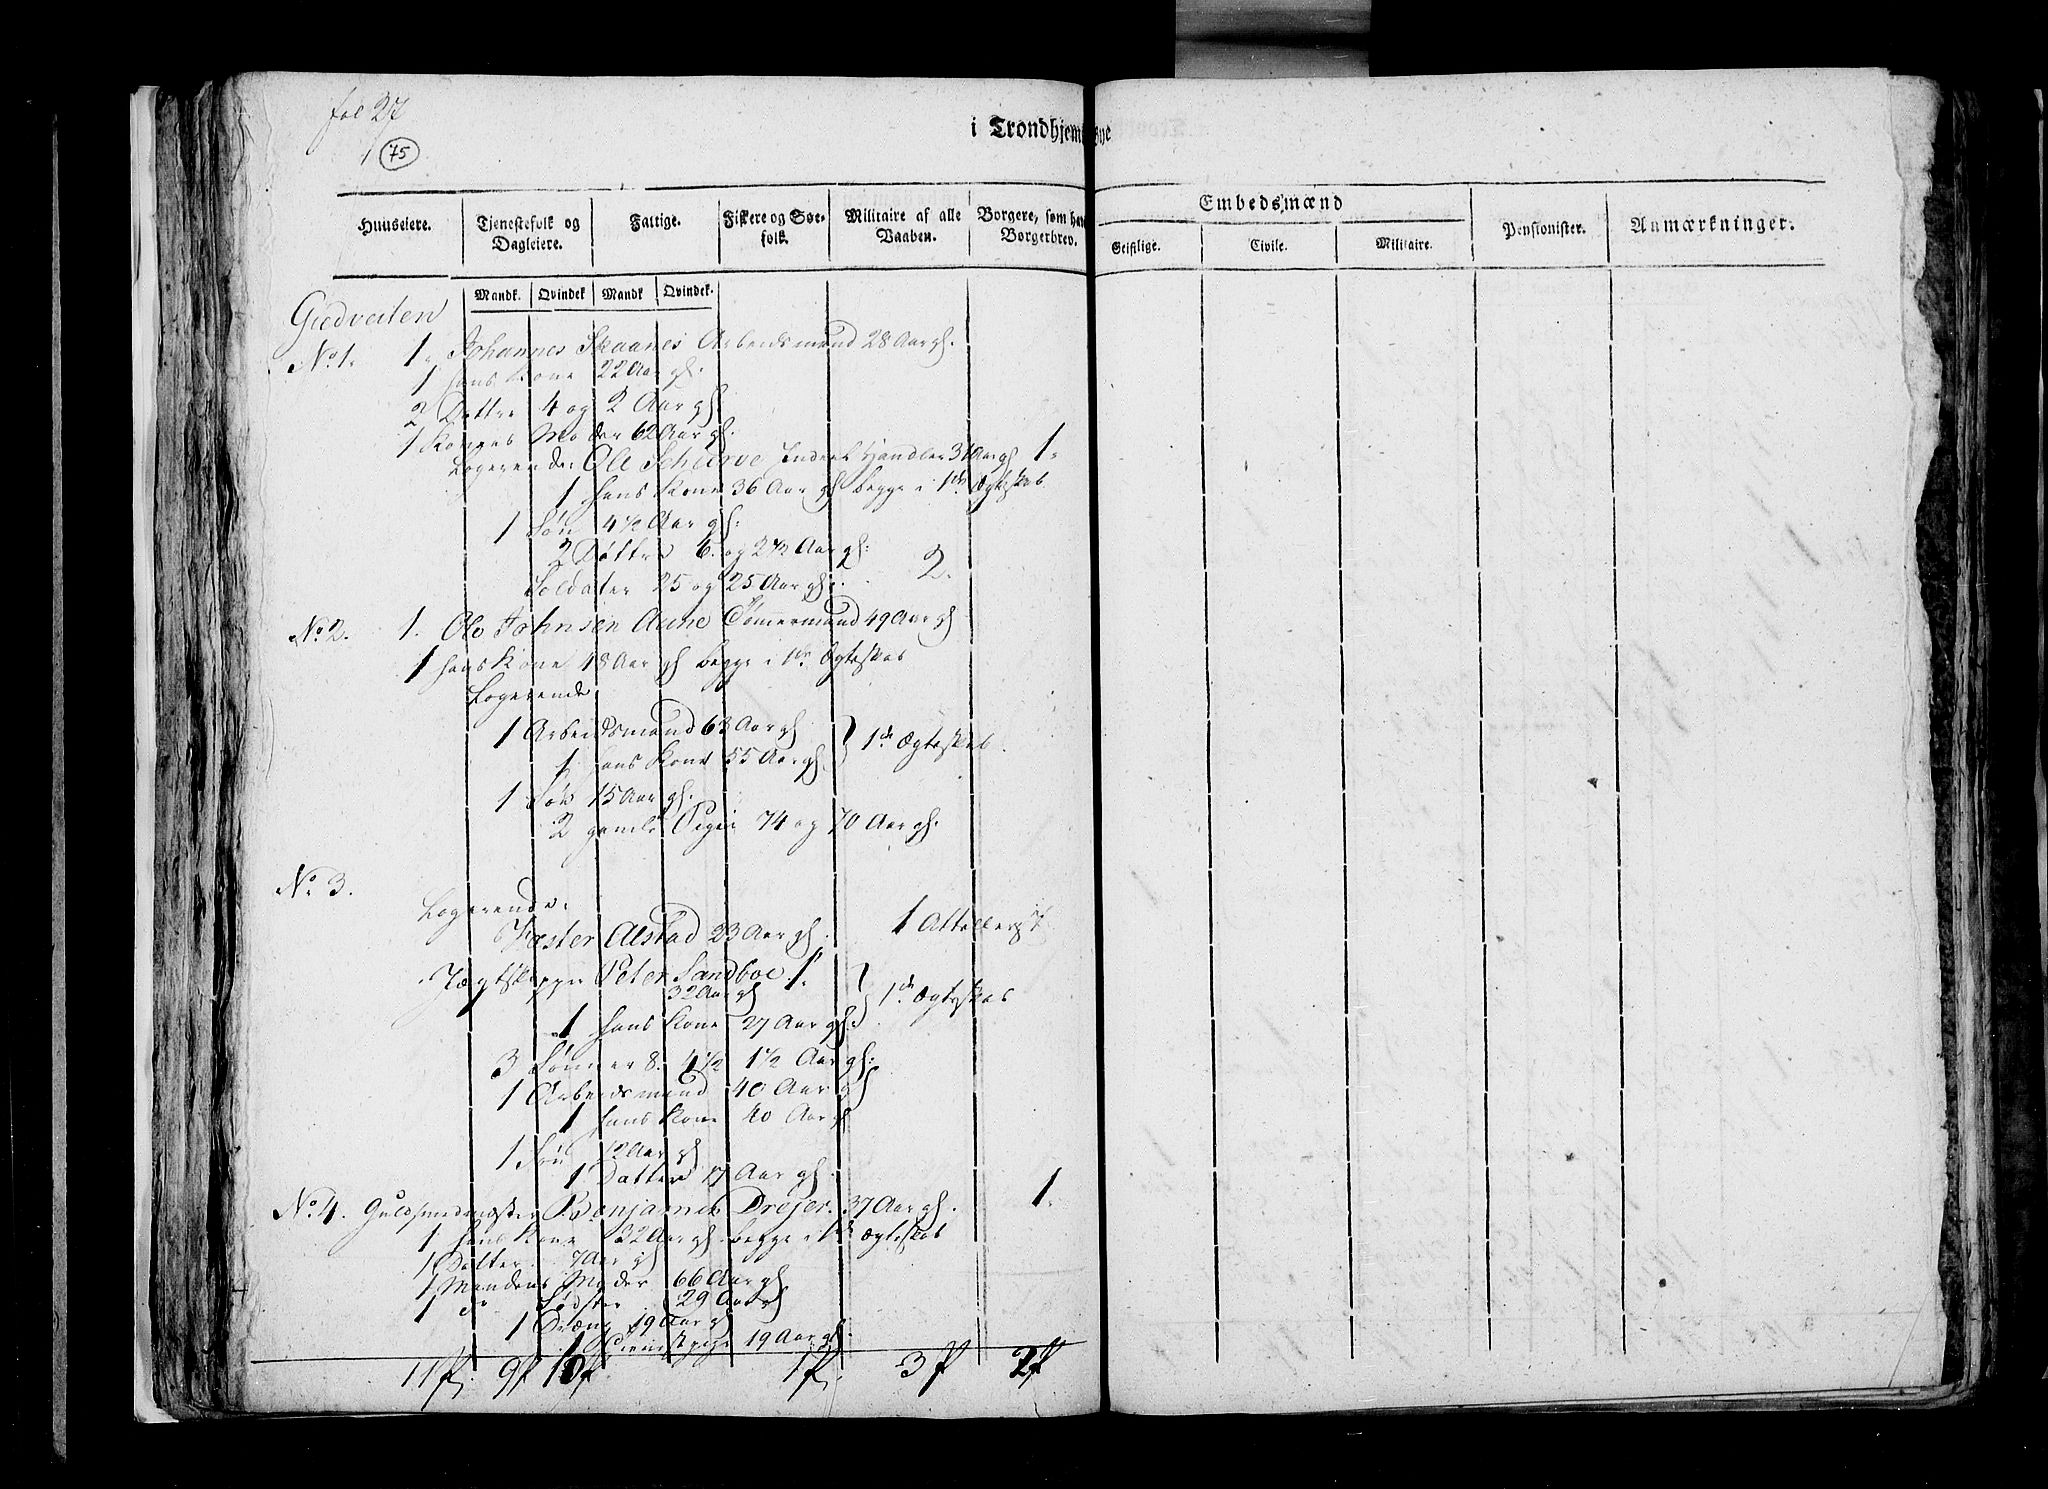 fol 27
75
i Trondhjems Bye
Huuseiere.
Tjenestefolk og Dagleiere.
Fattige.
Fiskere og Søefolk.
Militaire af alle Vaaben.
Borgere, som have Borgerbrev.
Embedsmænd
Geistlige.
Civile.
Militaire.
Pensionister.
Anmærkninger.
Mandk. Qvindek Mandk Qvindek.
Giedveiten
No 1. 1. Johannes Skaanes Arbeidsmand 28 Aar gl.
1 hans Kone 22 Aar gl.
2 Døttre 4 og 2 Aar gl.
1 Konens Moder 62 Aar gl.
Logerende: Ole Schierve Handler Aar gl 1.
1 hans Kone 36 Aar gl begge i 1ste Ægteskab
1 Søn 4½ Aar gl:
2 Døttre 6. og 2½ Aar gl:
Soldater 25 og 25 Aar gl: 2.
No 2. 1. Ole Johnsen Aune Tømmermand 49 Aar gl
1 hans Kone 48 Aar gl begge i 1ste Ægteskab
Logerende
1 Arbeidsmand 63 Aar gl
1 hans Kone 55 Aar gl. } 1ste Ægteskab.
1 Søn 15 Aar gl.
2 gamle Piger 74 og 70 Aar gl.
No 3.
Logerende.
Alstad 23 Aar gl. 1
Jægtskipper Peter Sandboe 1.
32 Aar gl } 1ste Ægteskab
1 hans Kone 27 Aar gl.
3 Sønner 8. 4½ 1½ Aar gl:
1 Arbeidsmand 40 Aar gl
1 hans Kone 40 Aar gl
1 Søn 12 Aar gl
1 Datter 17 Aar gl.
No 4. Guldsmedmester Benjamin Drejer. 37 Aar gl. 1.
1 hans Kone 32 Aar gl. begge i 1ste Ægteskab
1 Datter 7 Aar gl
1 Mandens Moder 66 Aar gl
1 do Søster 29 Aar gl
1 Dreng 19 Aar gl
1 Tienistepige 19 Aar gl.
11 9 10 1 3 2